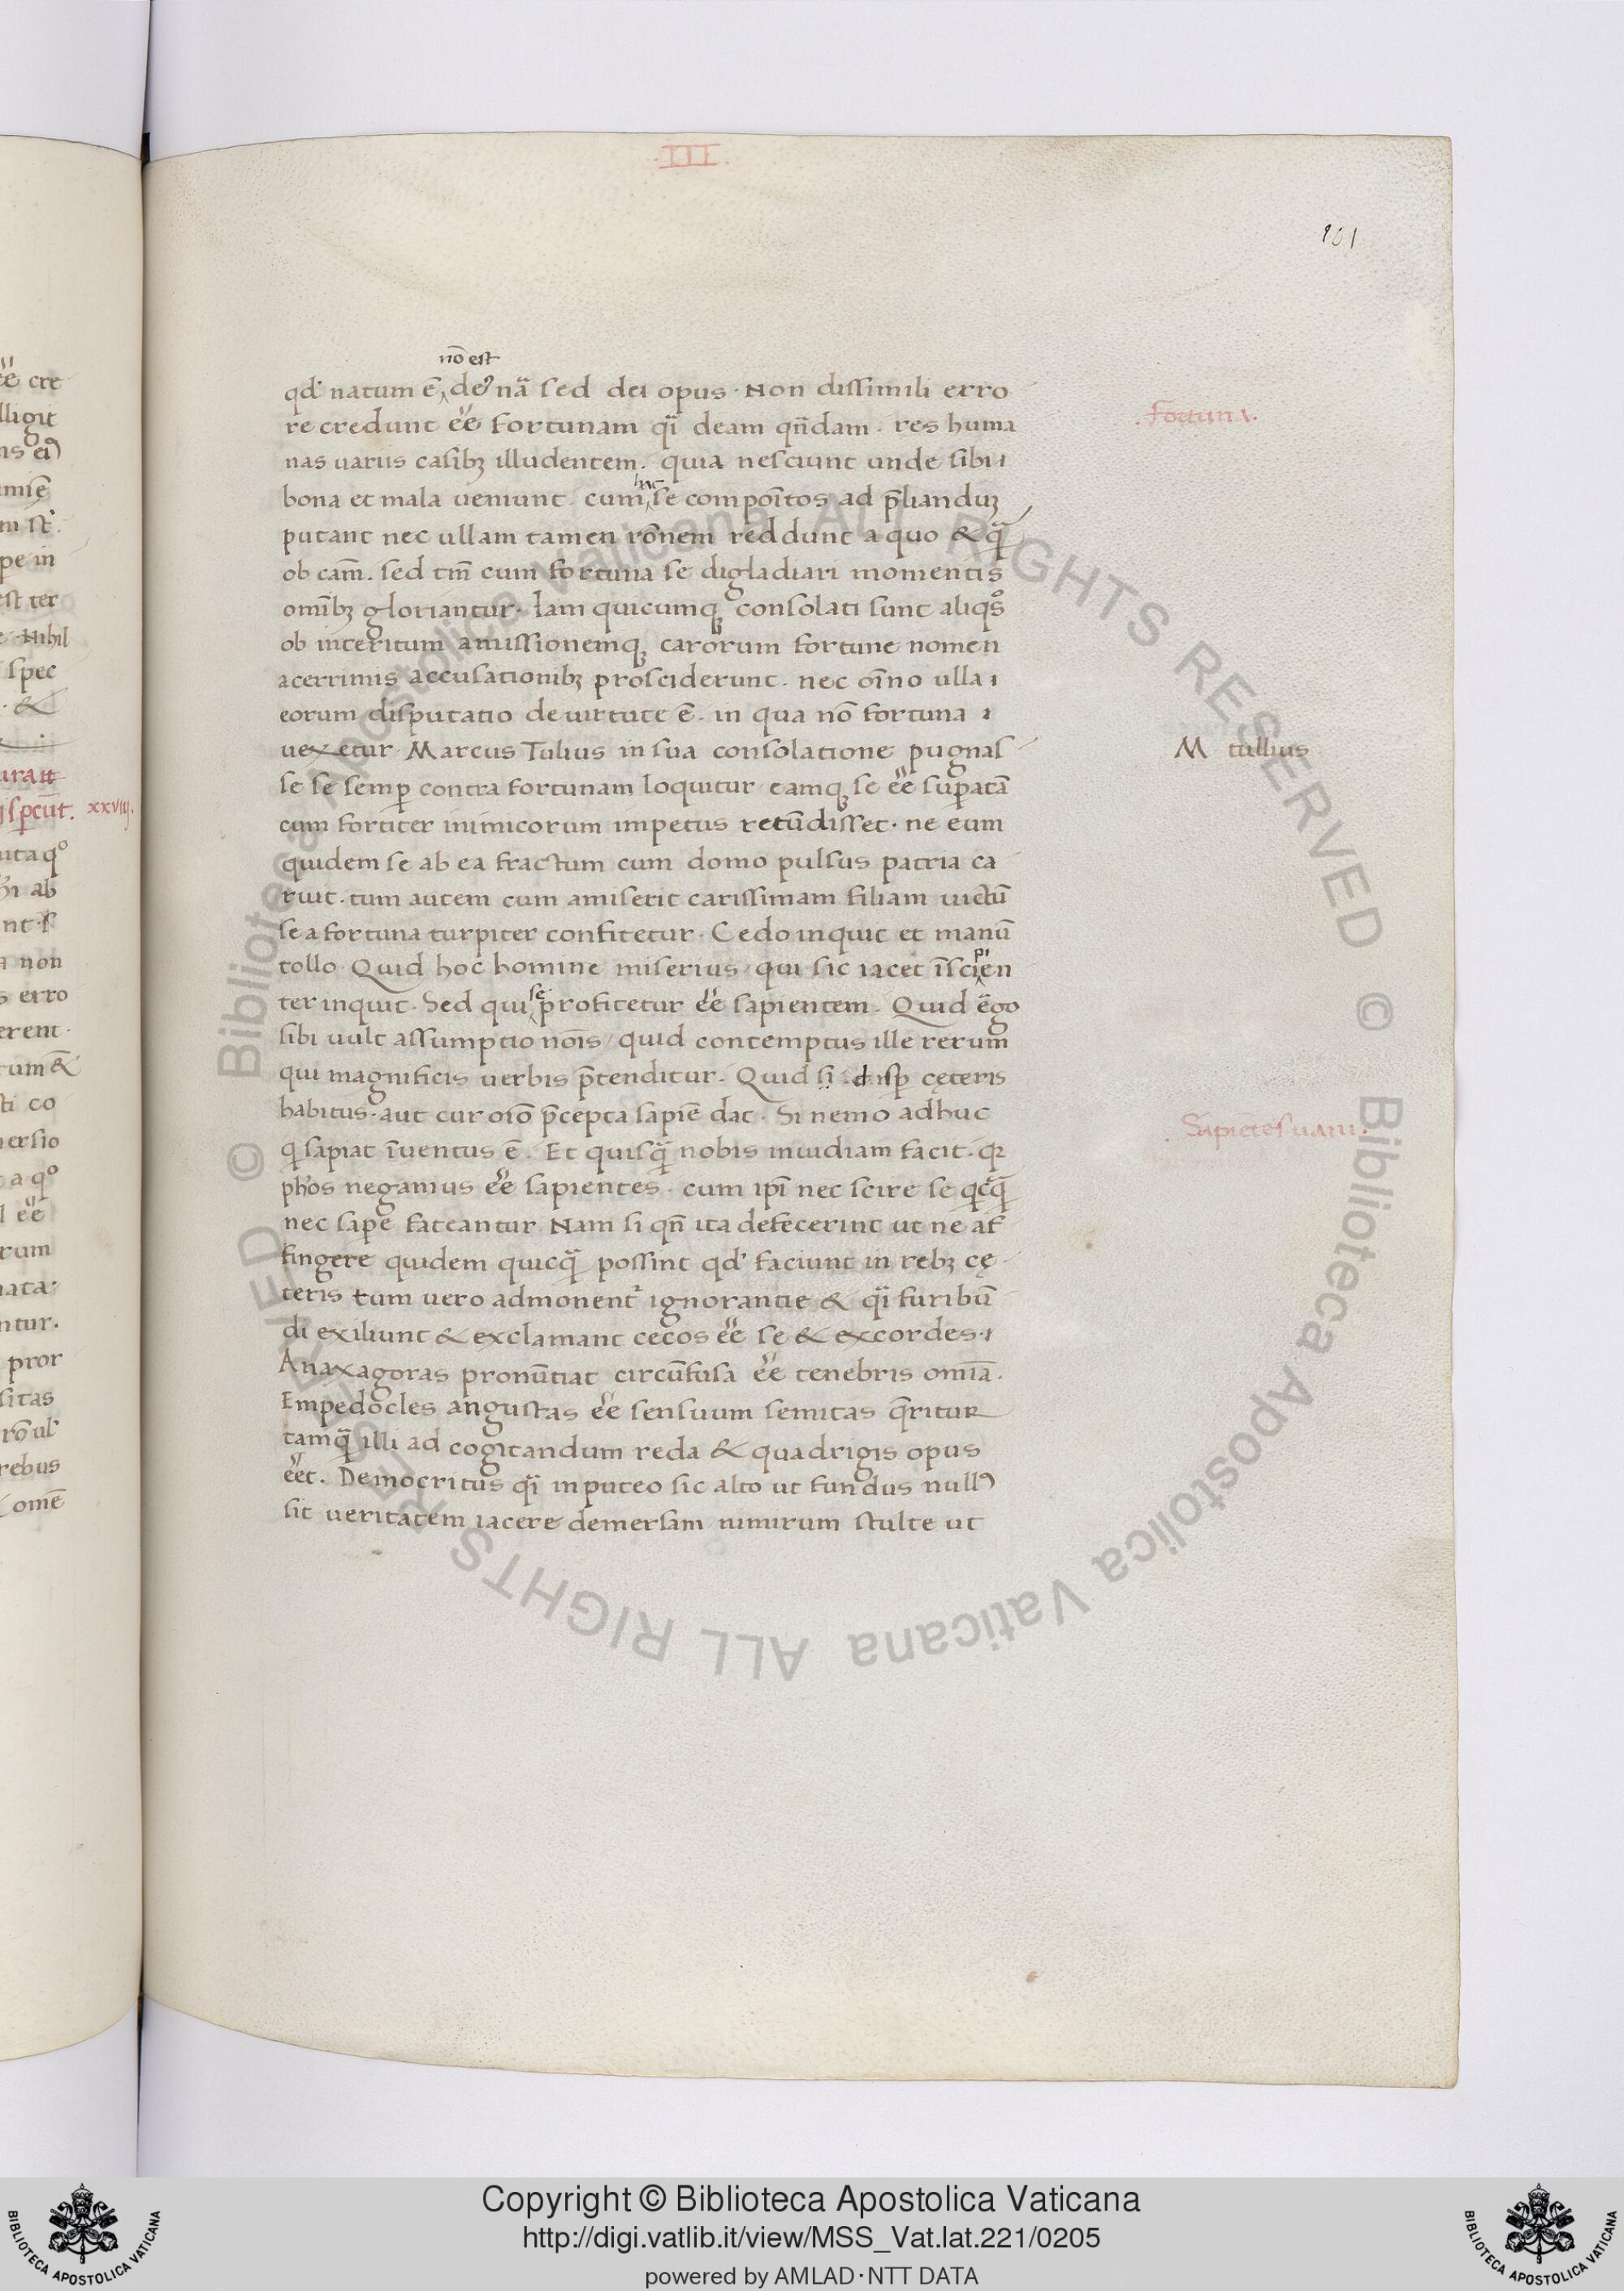 .III.
101
nō est
qd' natum ē de' nā sed dei opus · Non dissimili erro
re credunt ee͂ fortunam qi̅ deam qn̄dam . res huma
nas uariis casibꝫ illudentem . quia nesciunt unde sibi
bona et mala ueniunt . cum hac se compoītos ad p̄liandūꝫ
putant nec ullam tamen rōnem reddunt a quo & q̄
ob cām . sed tm̄ cum fortuna se digladiari momentis
omībꝫ gloriantur · Iam quicumqꝫ consolati sunt aliqˢᵒ
ob interitum amissionemqꝫ carorum fortune nomen
acerrimis accusationibꝫ prosciderunt . nec oīno ulla
eorum disputatio de uirtute ē . in qua nō fortuna
uexetur · Marcus Tulius in sua consolatione pugnas
se se semꝑ contra fortunam loquitur eamqꝫ se ee͂ suꝑatā
cum fortiter inimicorum impetus retūdisset · ne eum
quidem se ab ea fractum cum domo pulsus patria ca
ruit . tum autem cum amiserit carissimam filiam uictū
se a fortuna turpiter confitetur · Cedo inquit et manū
tollo · Quid hoc homine miserius / qui sic iacet īsci pi en
ter inquit · Sed qui se profitetur ee͂ sapientem . Quid ēgo
sibi uult assumptio noīs / quid contemptus ille rerum
qui magnificis uerbis p̄tenditur . Quid si disꝑ cęteris
habitus · aut cur oīo p̄cepta sapiē dat · Si nemo adhuc
q̄ sapiat īuentus ē . Et quisq̄ nobis inuidiam facit · qꝛ
ph̄os negamus ee͂ sapientes . cum ipī nec scire se qc̄q̄
nec sape fateantur Nam si qn̄ ita defecerint ut ne af
fingere quidem quicq̄ possint qd' faciunt in rebꝫ cę
teris tum uero admonentʳ ignorantie & qi̅ furibū
di exiliunt & exclamant cecos ee͂ se & excordes ·
Anaxagoras pronūtiat circūfusa ee͂ tenebris omīa .
Empedocles angustas ee͂ sensuum semitas q̄ritur
tamq̄ illi ad cogitandum reda & quadrigis opus
ee͂t . Democritus qi̅ in puteo sic alto ut fundus null'
sit ueritatem iacere demersam nimirum stulte ut
. Fortuna .
M tullius
. Sapietes uani .
ligit
Nihil
spec
xxviij.
uta qo
i ab
non
erro
erent ·
rum &
ti co
ersio
a qo
ee͂
rum
nata ·
ntur .
pror
sitas
rebus
omē
Copyright © Biblioteca Apostolica Vaticana
http://digi.vatlib.it/view/MSS_Vat.lat.221/0205
powered by AMLAD·NTT DATA
BIBLIOTECA APOSTOLICA VATICANA
BIBLIOTECA APOSTOLICA VATICANA
© Biblioteca Apostolica Vaticana ALL RIGHTS RESERVED © Biblioteca Apostolica Vaticana ALL RIGHTS RESERVED